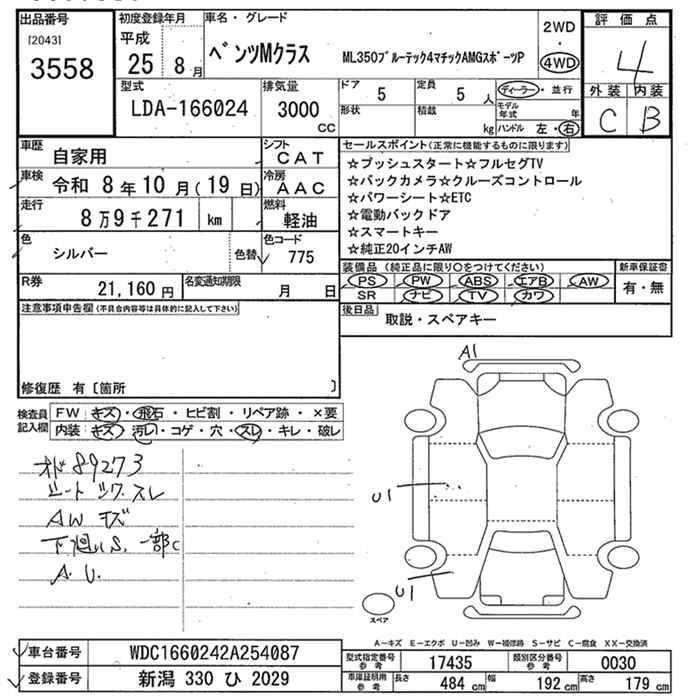 出品番号
[2043]
3558
初度登録年月
平成
25 8月
車名・グレード
ベンツMクラス
ML350ブルーテック4マチックAMGスポーツP
2WD
・
4WD
評価点
4
外装 内装
C B
型式
LDA-166024
排気量
3000
cc
ドア
5
定員
5 人
形状
積載
kg
ディーラー・並行
モデル年式 年
ハンドル 左・右
車歴
自家用
シフト
CAT
車検
令和 8年10月(19日)
冷房
AAC
走行
8万9千271 km
燃料
軽油
色
シルバー
色替
色コード
775
R券
21,160円
名変通知期限
月 日
セールスポイント(正常に機能するものに限ります)
☆プッシュスタート☆フルセグTV
☆バックカメラ☆クルーズコントロール
☆パワーシート☆ETC
☆電動バックドア
☆スマートキー
☆純正20インチAW
装備品(純正品に限り○をつけてください)
PS PW ABS エアB AW
SR ナビ TV カワ
新車保証書
有・無
後日品
取説・スペアキー
注意事項申告欄(不具合内容等は具体的に記入して下さい)
修復歴 有〔箇所 〕
検査員記入欄
FW キズ・飛石・ヒビ割・リペア跡・×要
内装 キズ・汚レ・コゲ・穴・スレ・キレ・破レ
オド89273
シート ツワ、スレ
AWキズ
下廻りS、一部C
A.U.
A1
U1
U1
スペア
A-キズ E-エクボ U-凹み W-補修跡 S-サビ C-腐食 XX-交換済
車台番号
WDC1660242A254087
登録番号
新潟 330 ひ 2029
型式指定番号
参考
17435
類別区分番号
参考
0030
車庫証明用
参考
長さ 484 cm
幅 192 cm
高さ 179 cm